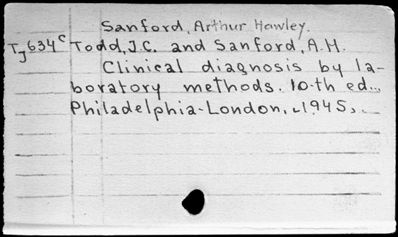 Sanford, Arthur Hawley.
TJ634c Todd, J.C. and Sanford, A.H.
Clinical diagnosis by la-
boratory methods. 10-th ed..
Philadelphia-London, 1945,